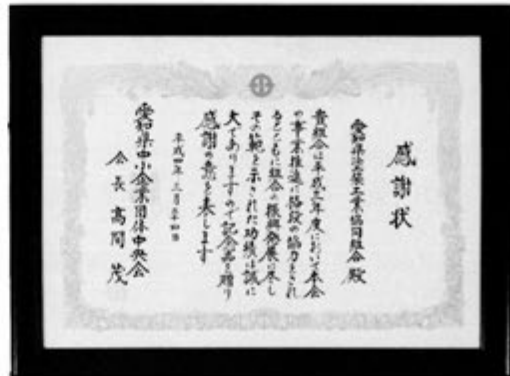 感謝状
愛知県法面工業協同組合殿
貴組合は平成三年度において本会
の事業推進に格段の協力をされ
るとともに組合の振興発展に尽し
その範を示された功績は誠に
大でありますので記念品を贈り
感謝の意を表します
平成四年三月二十四日
愛知県中小企業団体中央会
会長 高間茂